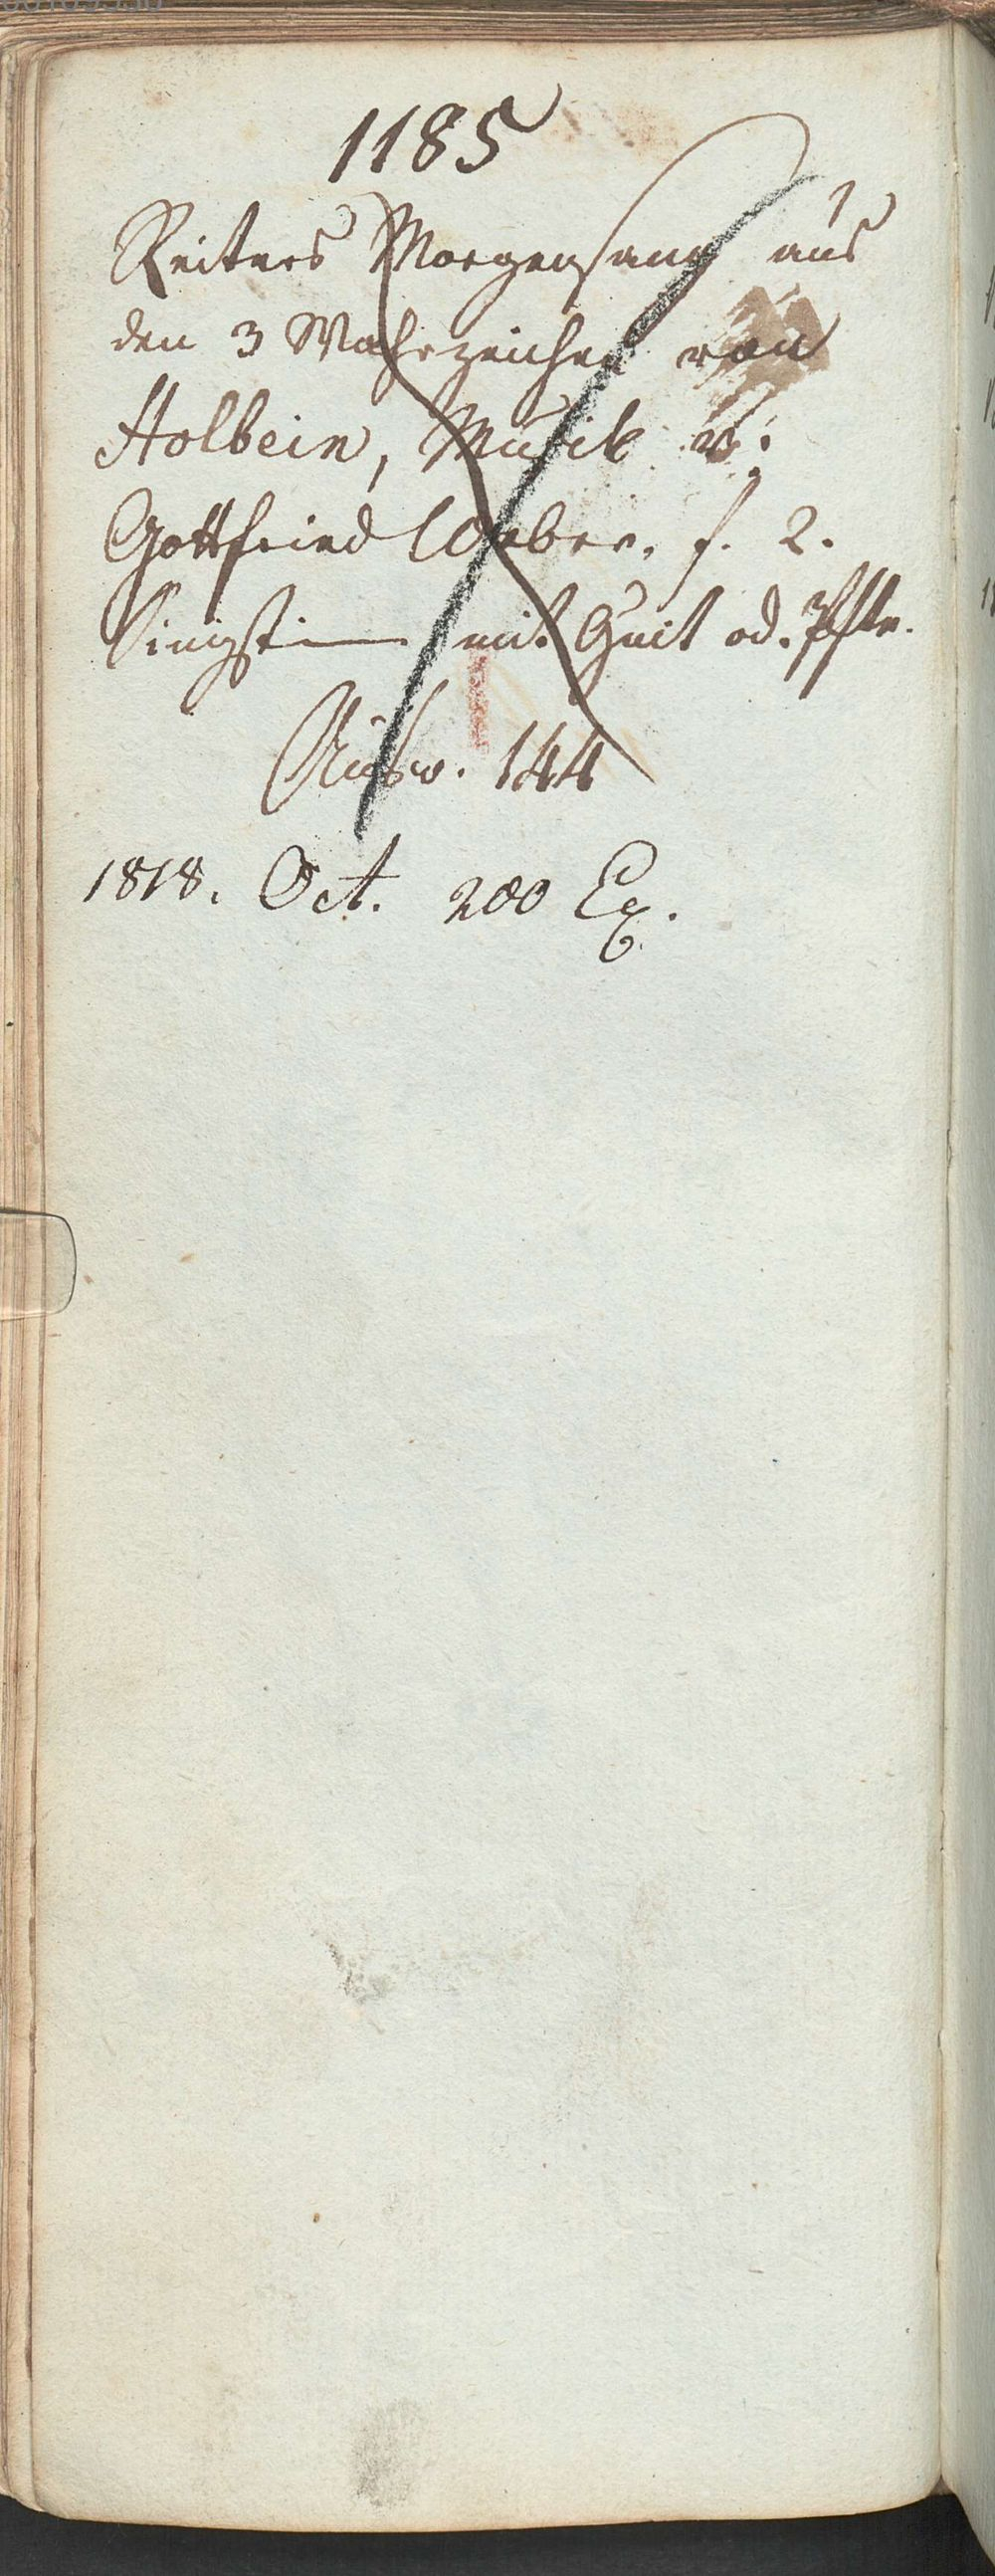 1185
Reiters Morgensang aus
den 3 Wahrzeichen von
Holbein, Musik v.
Gottfried Weber. f. 2.
Singstim mit Guit od. Pfte.
Ausw. 144
1818. Oct. 200 Ex.